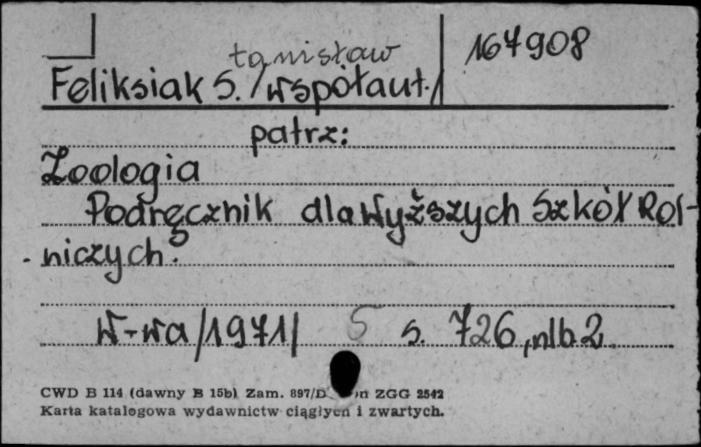 tanisław
Feliksiak S. /współaut./ 167908
patrz:
Zoologia
Podręcznik dla Wyższych Szkół Rol-
niczych.
W-wa /1971/ 5 s. 726, nlb. 2
CWD B 114 (dawny B 15b) Zam. 897/D ZGG 2542
Karta katalogowa wydawnictw ciągłych i zwartych.